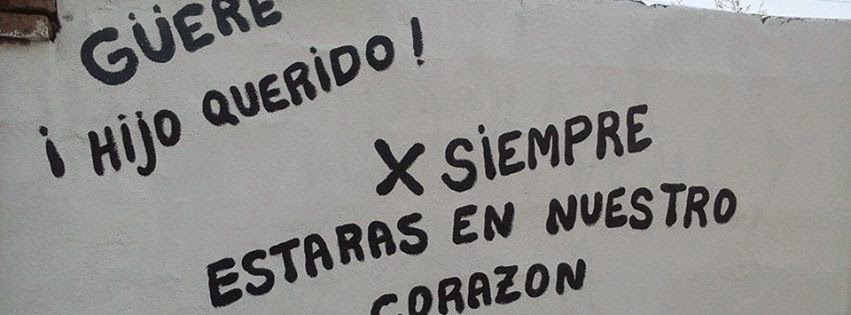 GÜERE
¡HijO QUERiDO!
X SiEMPRE
ESTARAS EN NUESTRO
CORAZON